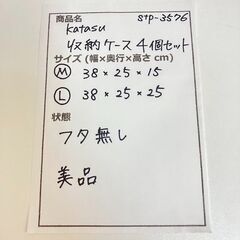 商品名 stp-3576
katasu
収納ケース 4個セット
サイズ (幅×奥行×高さ cm)
Ⓜ 38 × 25 × 15
Ⓛ 38 × 25 × 25
状態
フタ無し
美品